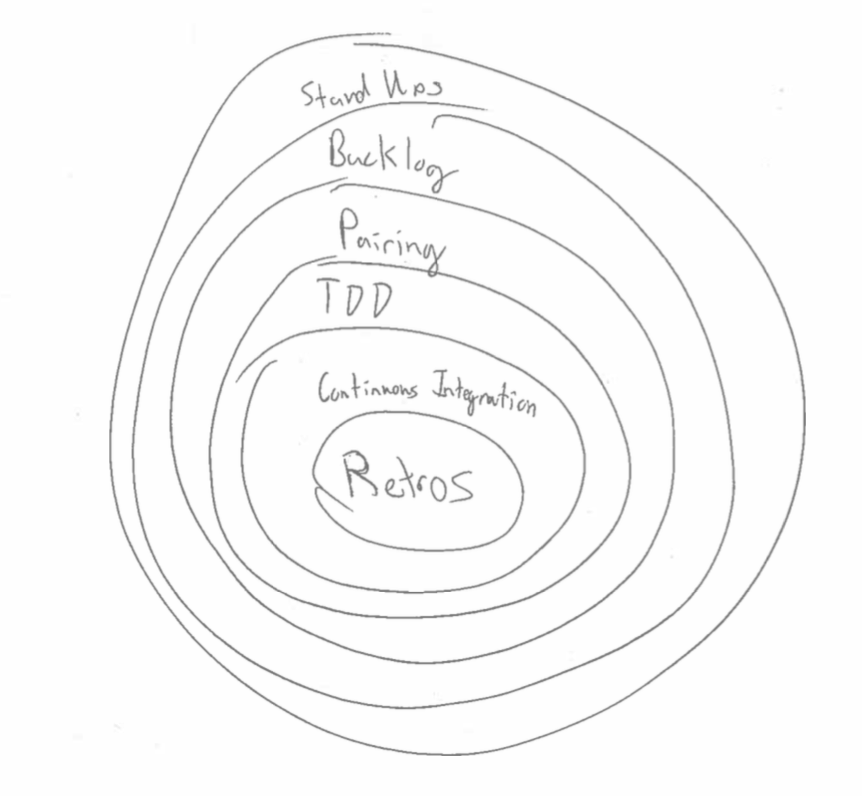 Stand Ups
Backlog
Pairing
TDD
Continuous Integration
Retros